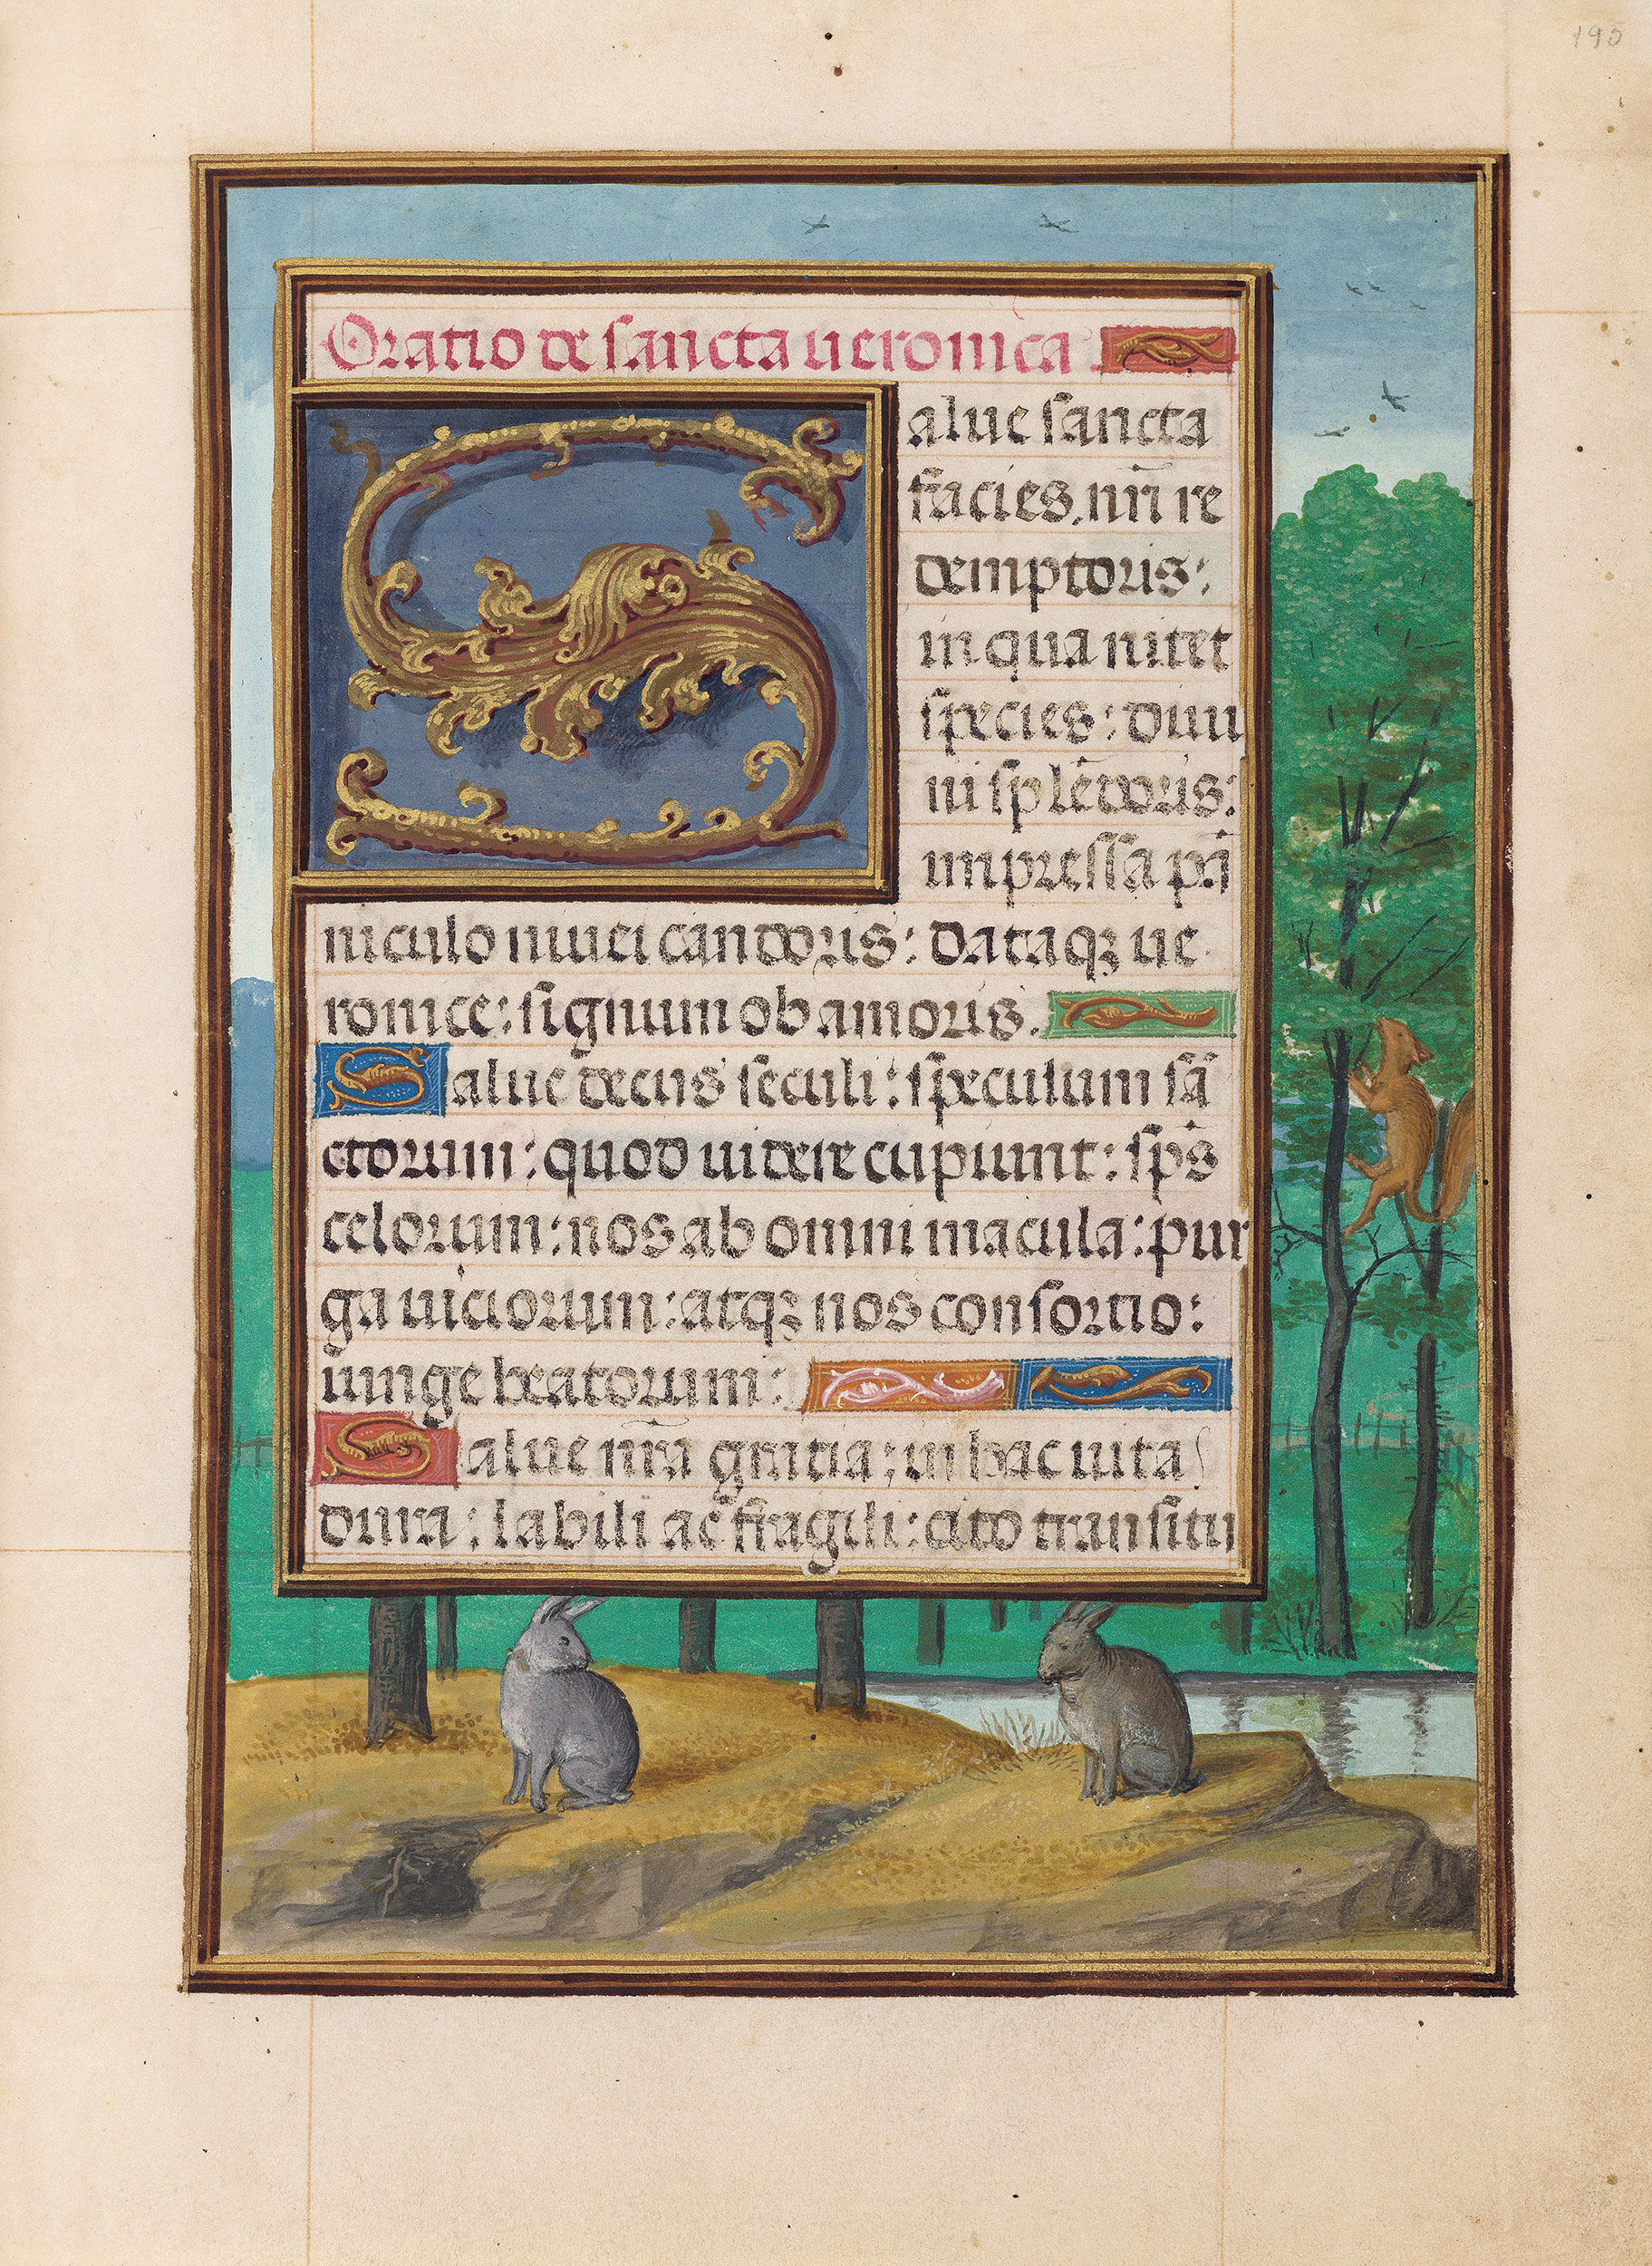 190
Oratio de sancta ueronica.
Salue sancta
facies. nrī re
demptoris:
in qua nitet
species: diui
ni splēdoris:
impressa pā
niculo niuei candoris: dataqꝫ ue
ronice: signum ob amoris.
Salue decus seculi: speculum sā
ctorum: quod uidere cupiunt: sp̄s
celorum: nos ab omni macula: pur
ga uiciorum: atqꝫ nos consortio:
iunge beatorum:
Salue nr̄a gratia: in hac uita
dura: labili ac fragili: cito transitu